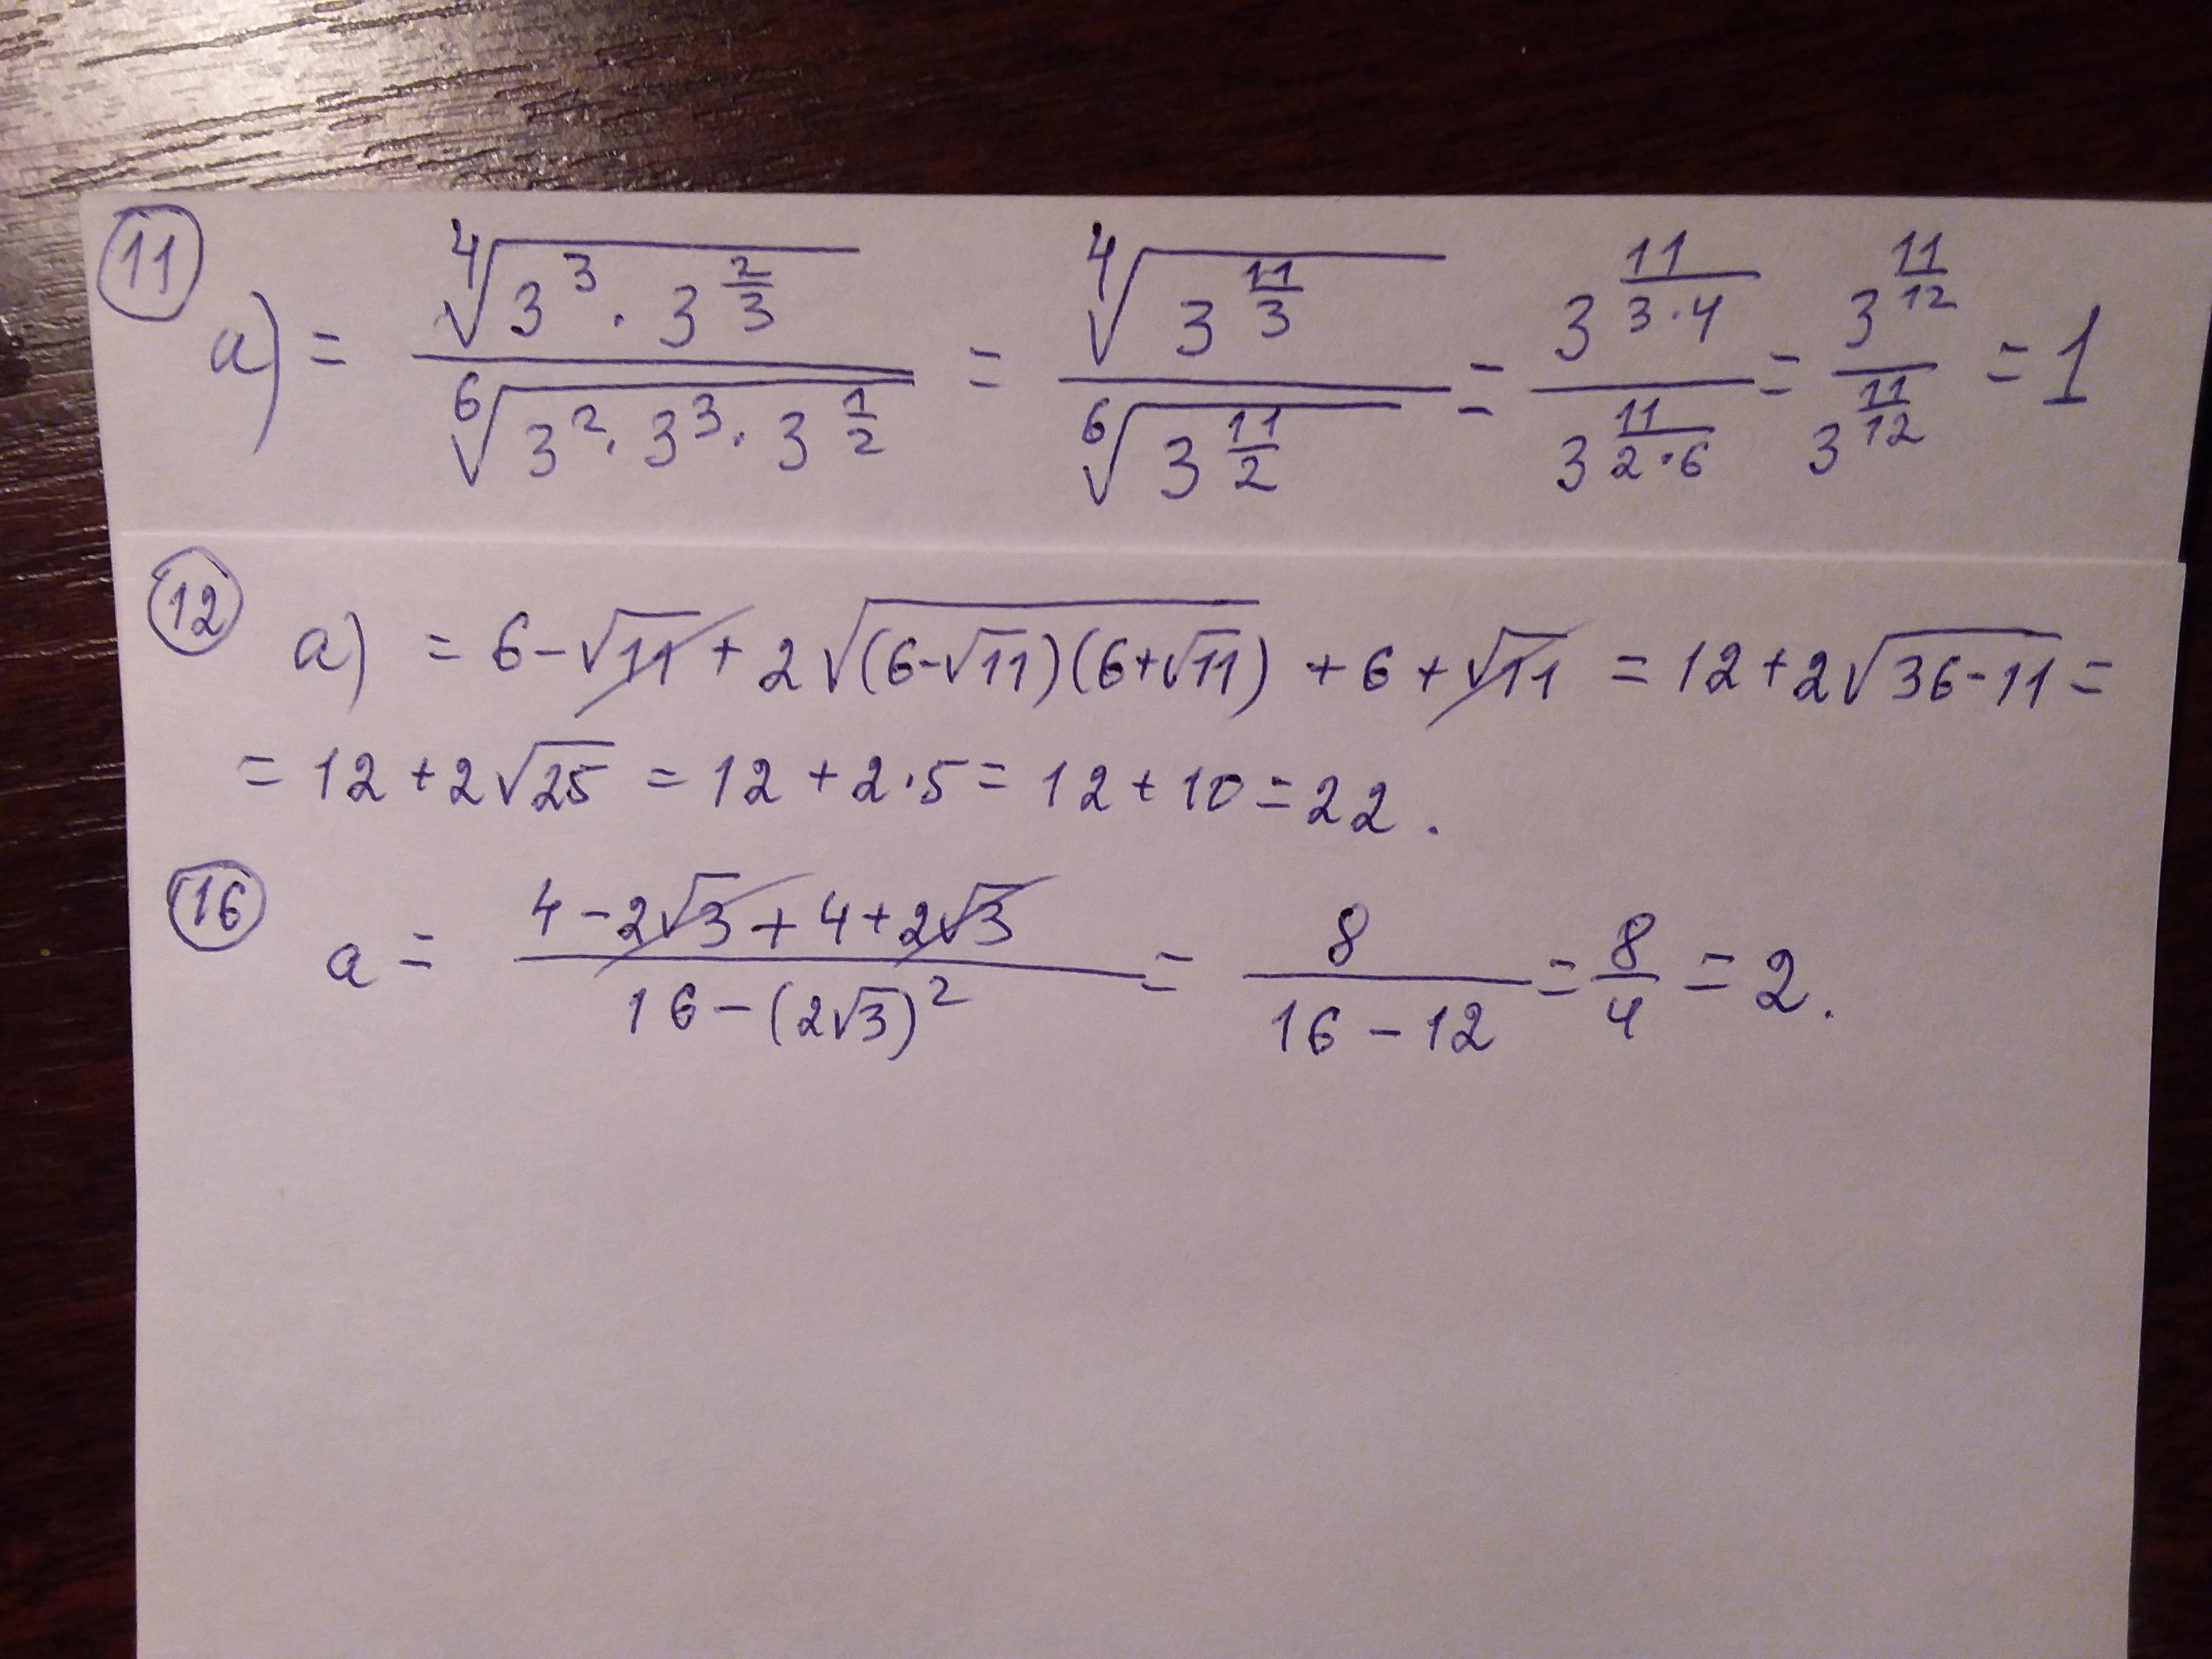 11
a) = ⁴√(3³ · 3^(2/3)) / ⁶√(3² · 3³ · 3^(1/2)) = ⁴√(3^(11/3)) / ⁶√(3^(11/2)) = 3^(11/(3·4)) / 3^(11/(2·6)) = 3^(11/12) / 3^(11/12) = 1
12
a) = 6 - √11 + 2√((6-√11)(6+√11)) + 6 + √11 = 12 + 2√(36-11) =
= 12 + 2√25 = 12 + 2·5 = 12 + 10 = 22.
16
a = (4 - 2√3 + 4 + 2√3) / (16 - (2√3)²) = 8 / (16 - 12) = 8/4 = 2.